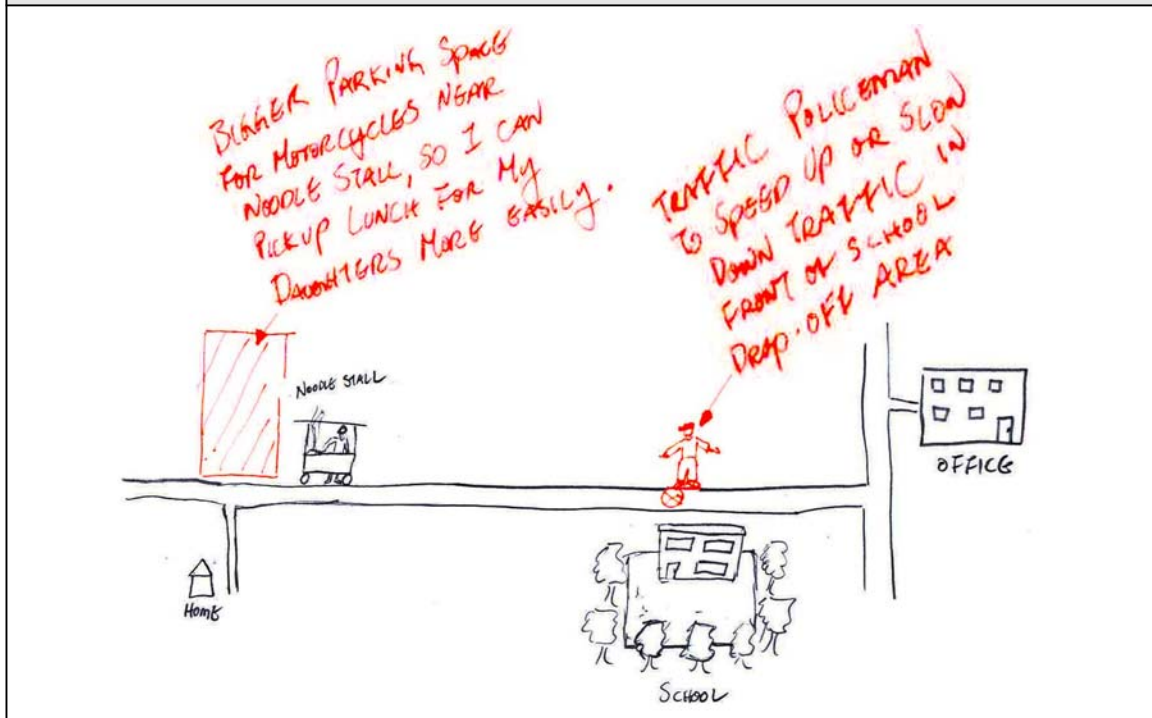 BIGGER PARKING SPACE
FOR MOTORCYCLES NEAR
NOODLE STALL, SO I CAN
PICKUP LUNCH FOR MY
DAUGHTERS MORE EASILY.
TRAFFIC POLICEMAN
TO SPEED UP OR SLOW
DOWN TRAFFIC IN
FRONT OF SCHOOL
DROP-OFF AREA
NOODLE STALL
OFFICE
HOME
SCHOOL